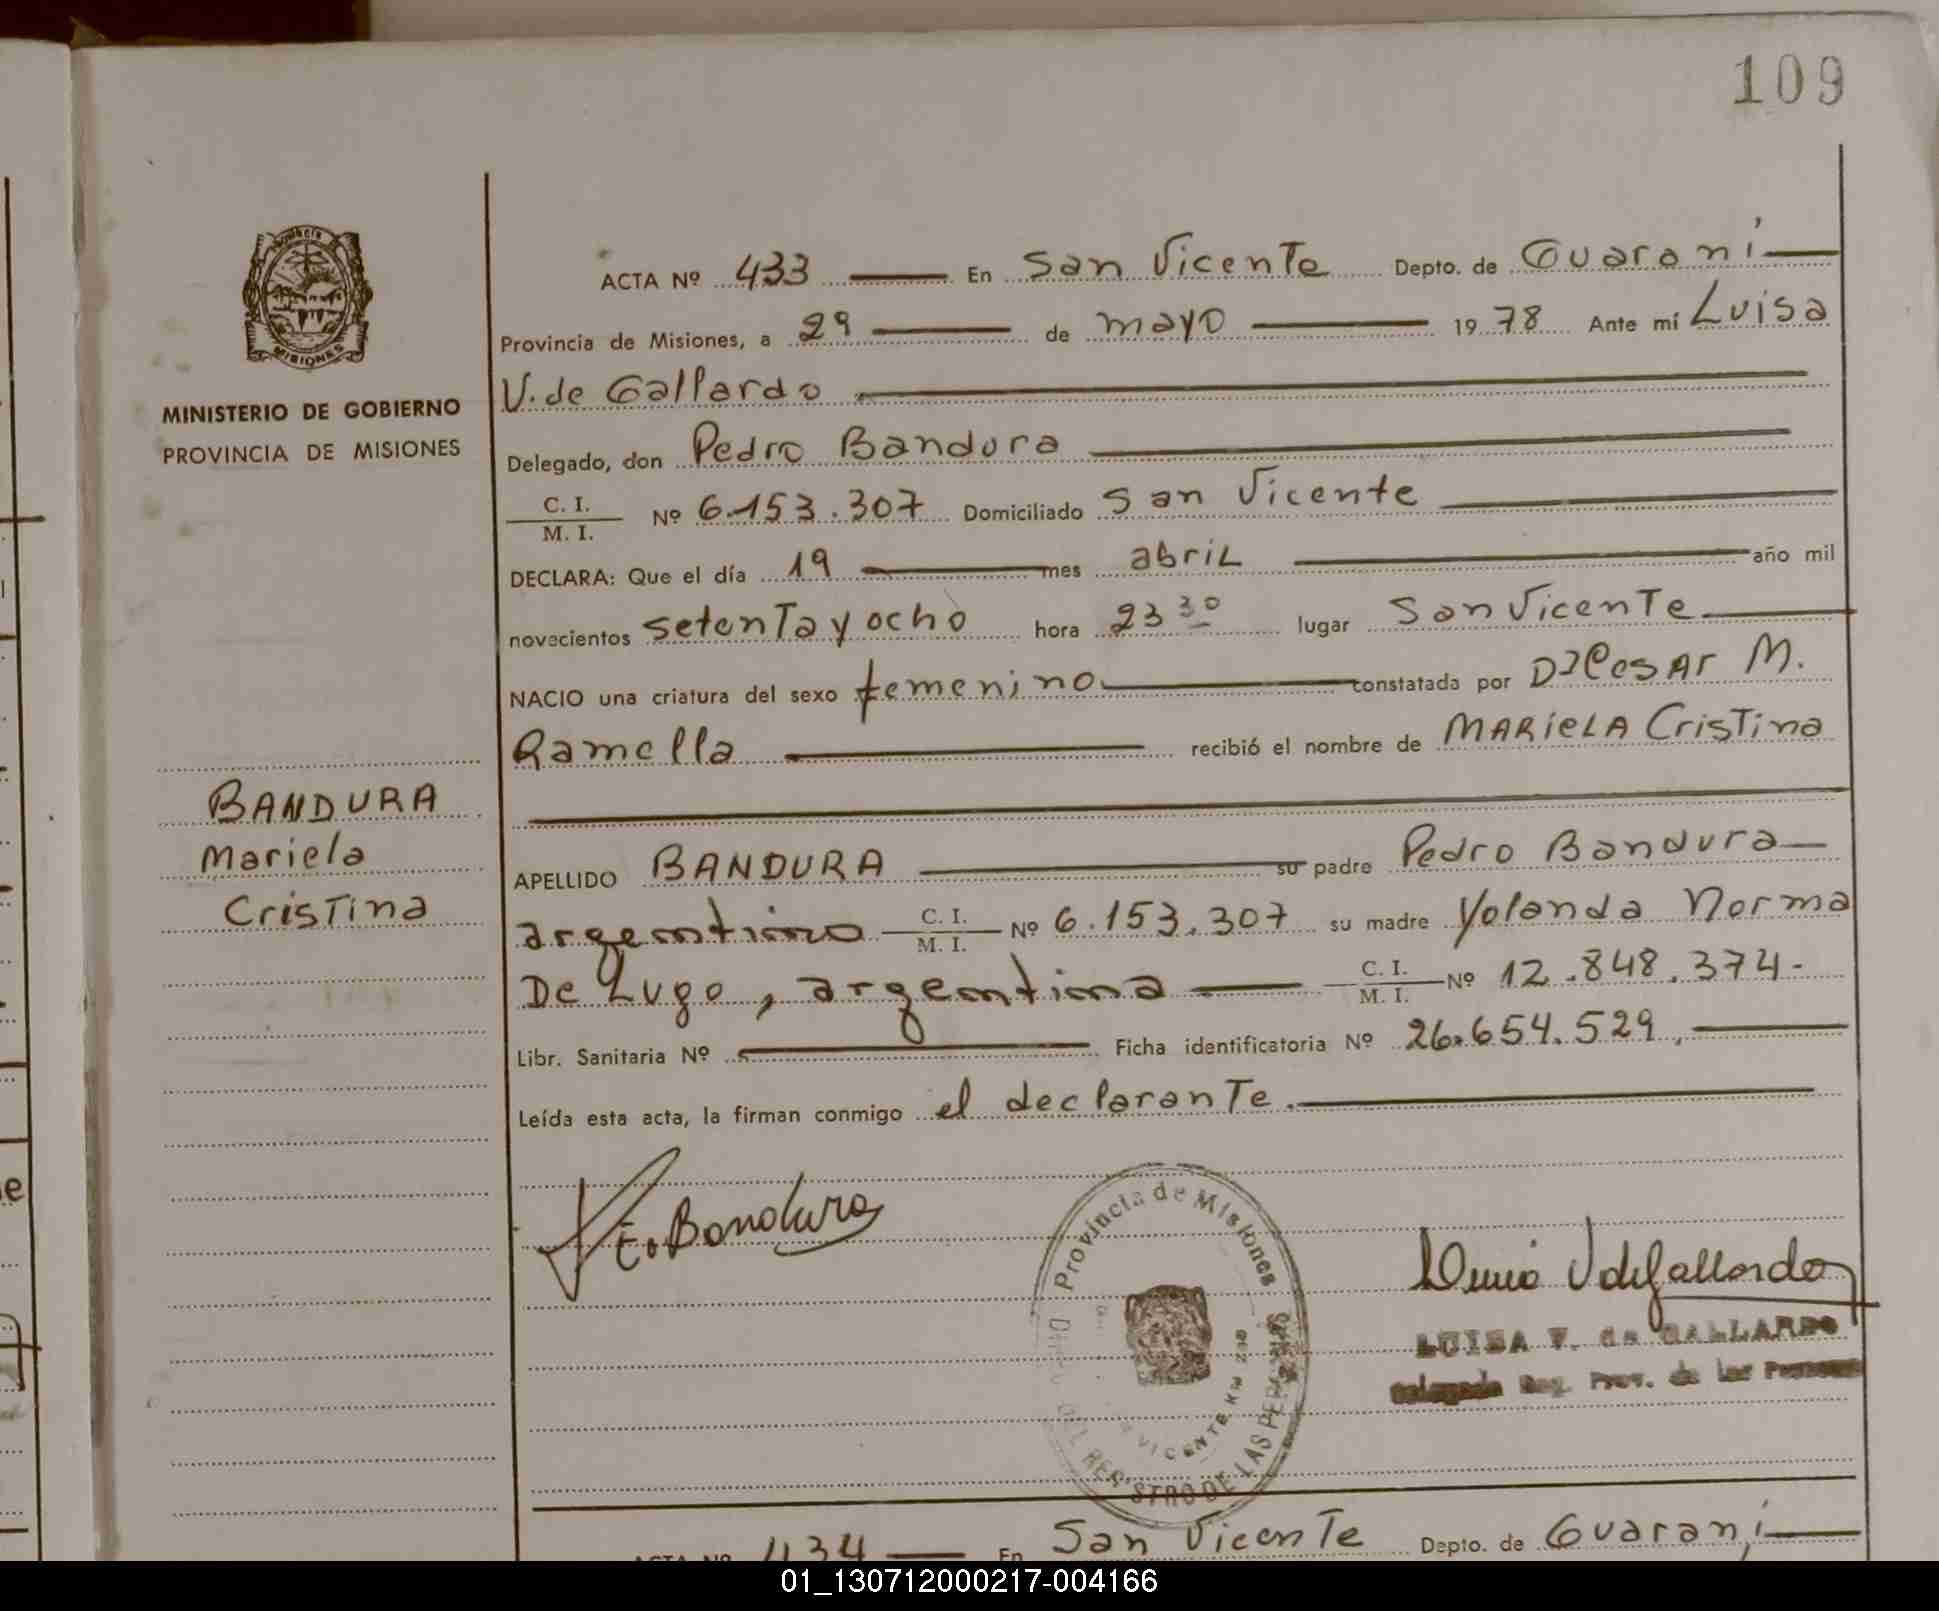 109
MISIONES
MINISTERIO DE GOBIERNO
PROVINCIA DE MISIONES
BANDURA
Mariela
Cristina
ACTA Nº 433 En San Vicente Depto. de Guaraní
Provincia de Misiones, a 29 de mayo 1978 Ante mí Luisa
V. de Gallardo
Delegado, don Pedro Bandura
C. I.
M. I. Nº 6.153.307 Domiciliado San Vicente
DECLARA: Que el día 19 mes abril año mil
novecientos setenta y ocho hora 23 30 lugar San Vicente
NACIO una criatura del sexo femenino constatada por Dr Cesar M.
Ramella recibió el nombre de MARIELA Cristina
APELLIDO BANDURA su padre Pedro Bandura
argentino C. I. M. I. Nº 6.153.307 su madre Yolanda Norma
De Lugo, argentina C. I. M. I. Nº 12.848.374.-
Libr. Sanitaria Nº Ficha identificatoria Nº 26.654.529.
Leída esta acta, la firman conmigo el declarante.
Bandura
Provincia de Misiones
DEL REGISTRO DE LAS PERSONAS
VICENTE KM
V de Gallardo
LUISA V. de GALLARDO
Delegada Reg. Prov. de las Personas
ACTA Nº 434 En San Vicente Depto. de Guaraní
01_130712000217-004166